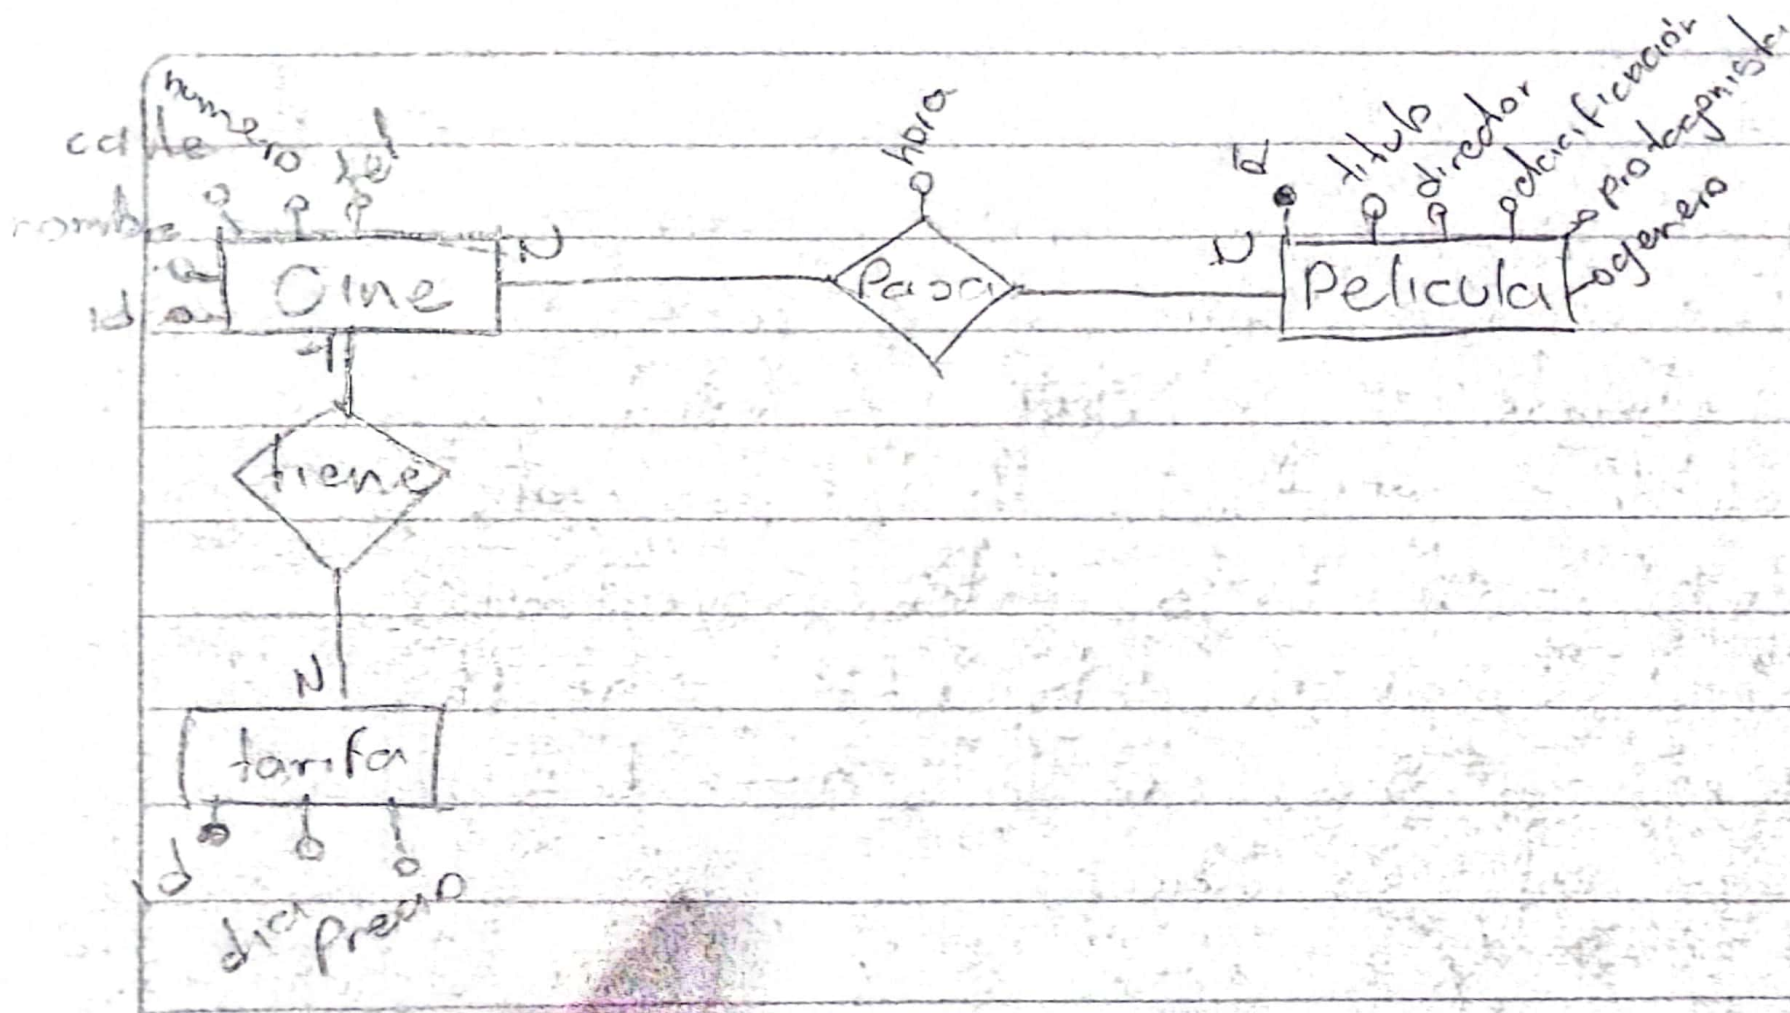 numero
calle
tel
nombre
id
Cine
N
hora
Pasa
N
id
titulo
director
clasificación
protagonista
genero
Pelicula
1
tiene
N
tarifa
id
dia
precio